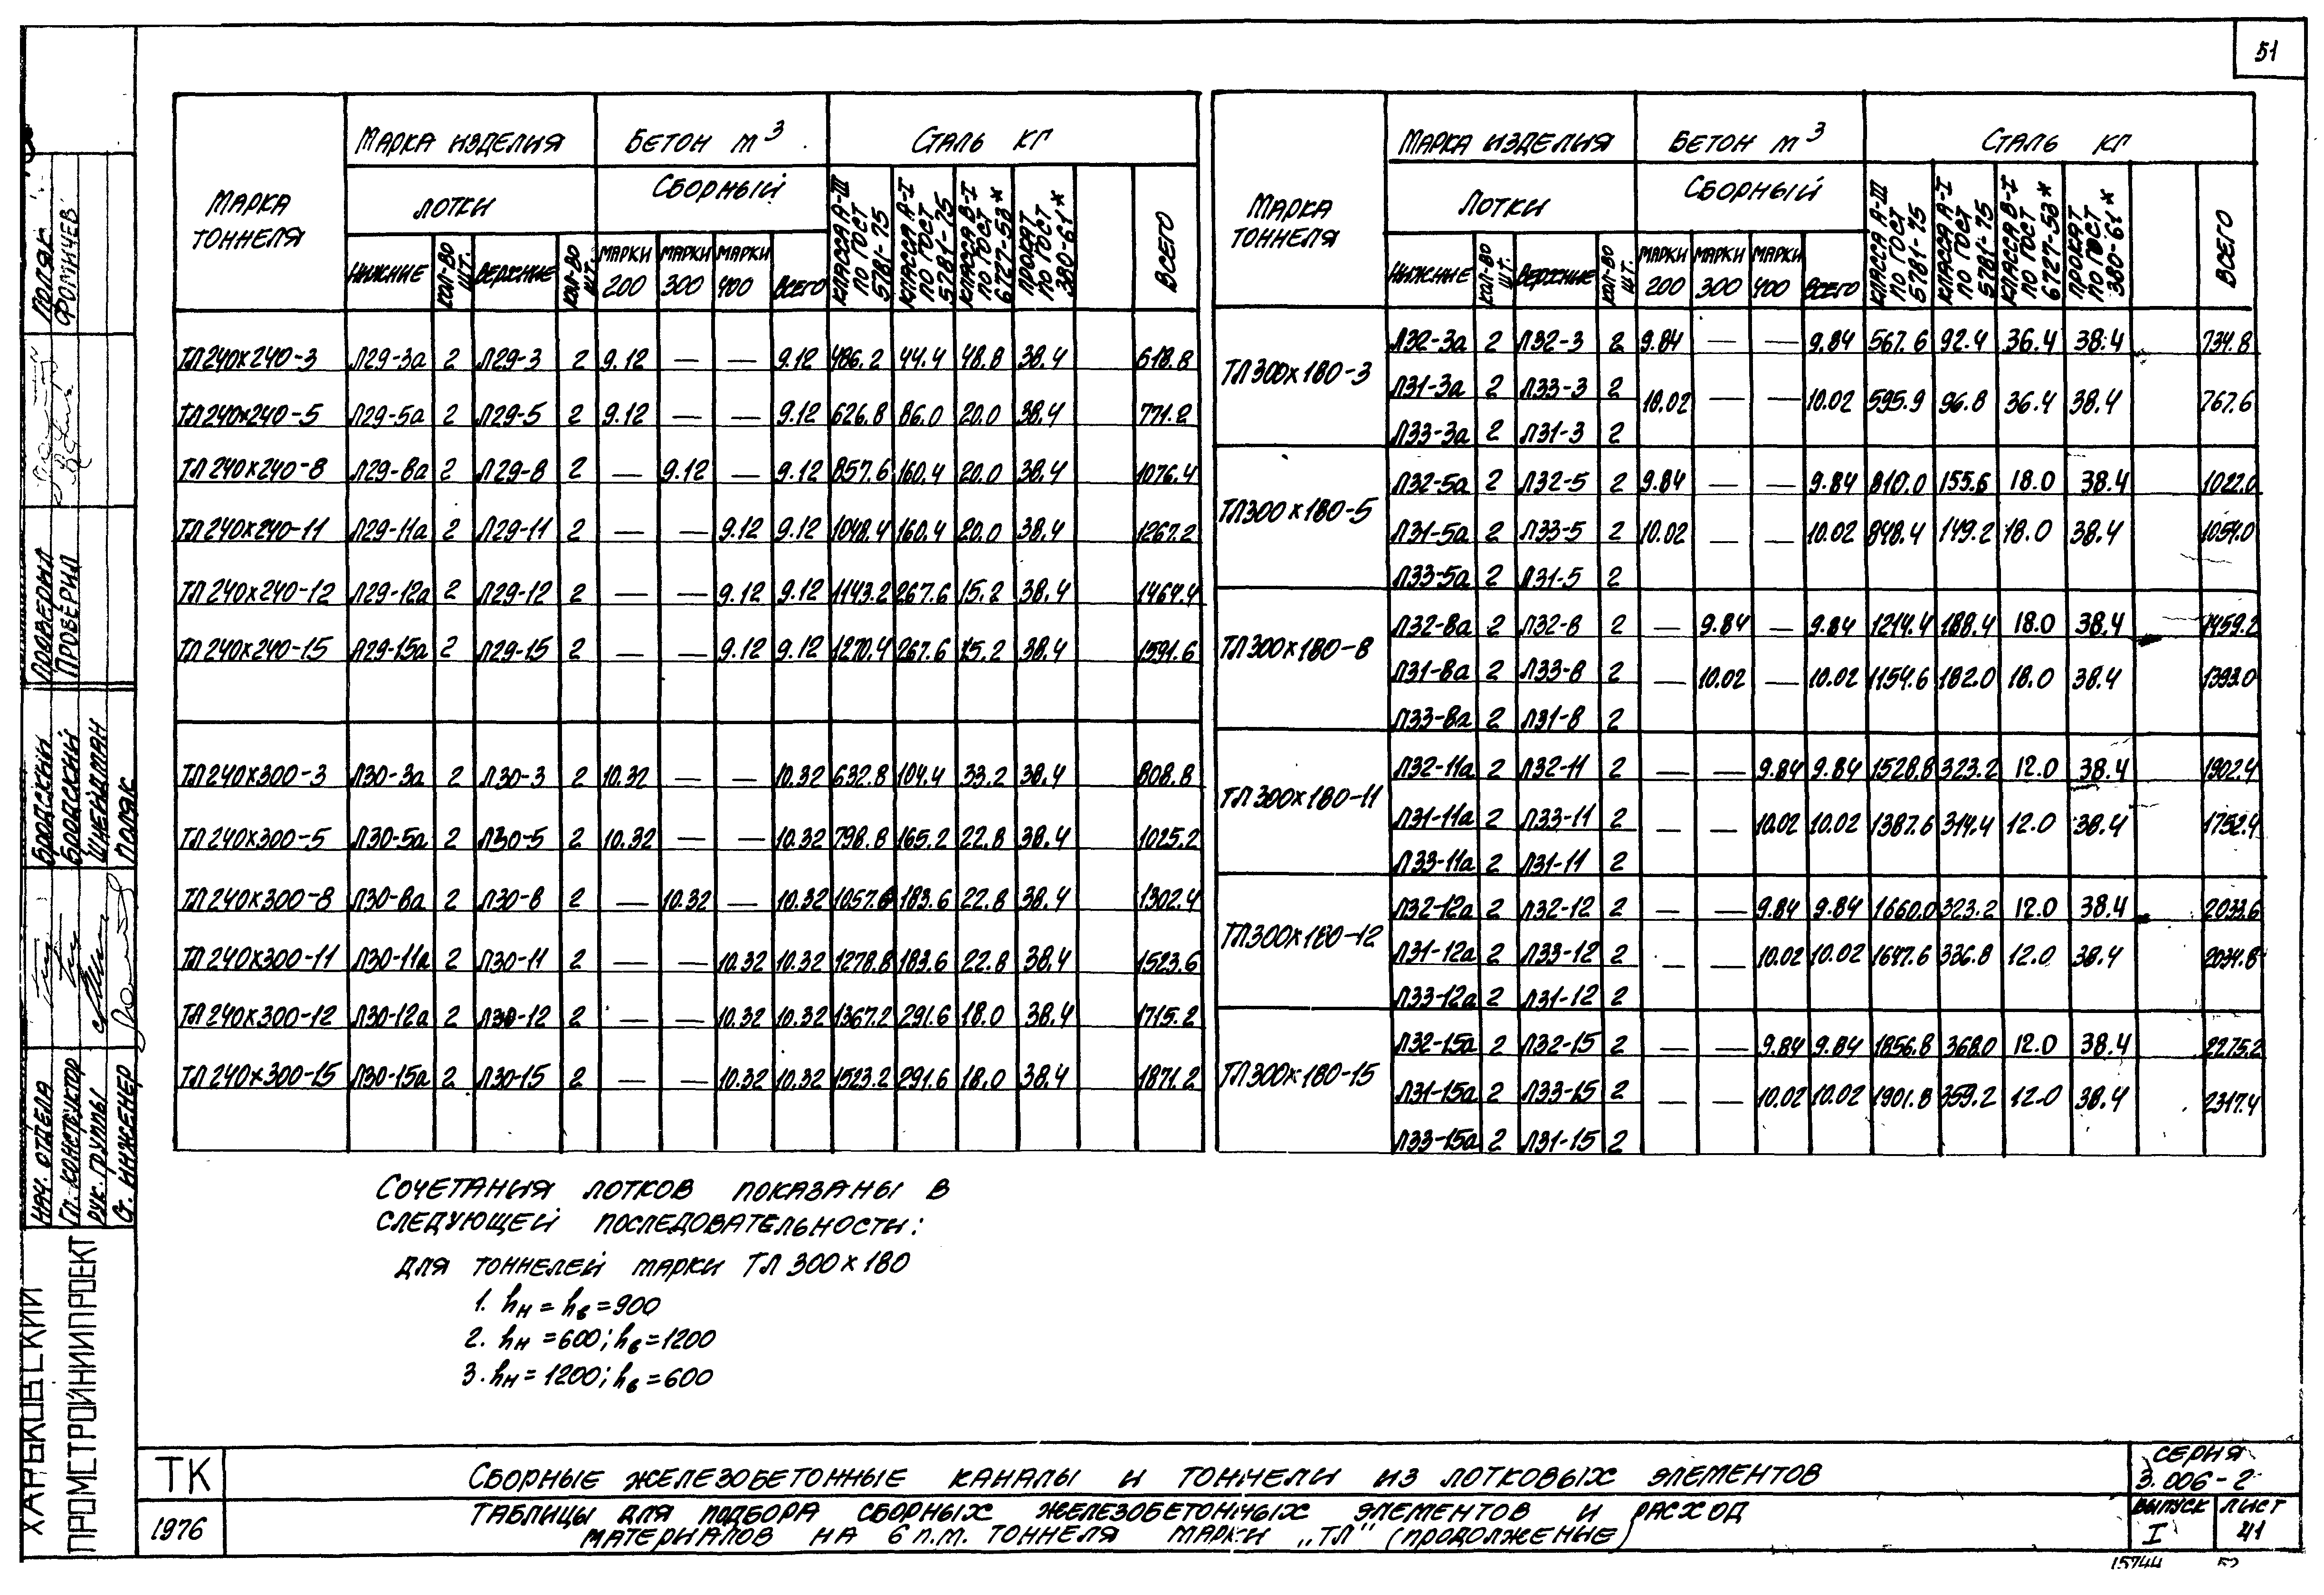 51
МАРКА ТОННЕЛЯ | МАРКА ИЗДЕЛИЯ | БЕТОН м3 | СТАЛЬ КГ
ЛОТКИ | СБОРНЫЙ | КЛАССА А-III ПО ГОСТ 5781-75 | КЛАССА А-I ПО ГОСТ 5781-75 | КЛАССА В-I ПО ГОСТ 6727-53* | ПРОКАТ ПО ГОСТ 380-61* | ВСЕГО
НИЖНИЕ | КОЛ-ВО ШТ. | ВЕРХНИЕ | КОЛ-ВО ШТ. | МАРКИ 200 | МАРКИ 300 | МАРКИ 400 | ВСЕГО
ТЛ240х240-3 Л29-3а 2 Л29-3 2 9.12 — — 9.12 486.2 44.4 48.8 38.4 618.8
ТЛ240х240-5 Л29-5а 2 Л29-5 2 9.12 — — 9.12 626.8 86.0 20.0 38.4 771.2
ТЛ240х240-8 Л29-8а 2 Л29-8 2 — 9.12 — 9.12 857.6 160.4 20.0 38.4 1076.4
ТЛ240х240-11 Л29-11а 2 Л29-11 2 — — 9.12 9.12 1048.4 160.4 20.0 38.4 1267.2
ТЛ240х240-12 Л29-12а 2 Л29-12 2 — — 9.12 9.12 1143.2 267.6 15.2 38.4 1464.4
ТЛ240х240-15 Л29-15а 2 Л29-15 2 — — 9.12 9.12 1270.4 267.6 15.2 38.4 1591.6
ТЛ240х300-3 Л30-3а 2 Л30-3 2 10.32 — — 10.32 632.8 104.4 33.2 38.4 808.8
ТЛ240х300-5 Л30-5а 2 Л30-5 2 10.32 — — 10.32 798.8 165.2 22.8 38.4 1025.2
ТЛ240х300-8 Л30-8а 2 Л30-8 2 — 10.32 — 10.32 1057.6 183.6 22.8 38.4 1302.4
ТЛ240х300-11 Л30-11а 2 Л30-11 2 — — 10.32 10.32 1278.8 183.6 22.8 38.4 1523.6
ТЛ240х300-12 Л30-12а 2 Л30-12 2 — — 10.32 10.32 1367.2 291.6 18.0 38.4 1715.2
ТЛ240х300-15 Л30-15а 2 Л30-15 2 — — 10.32 10.32 1523.2 291.6 18.0 38.4 1871.2
МАРКА ТОННЕЛЯ | МАРКА ИЗДЕЛИЯ | БЕТОН м3 | СТАЛЬ КГ
ЛОТКИ | СБОРНЫЙ | КЛАССА А-III ПО ГОСТ 5781-75 | КЛАССА А-I ПО ГОСТ 5781-75 | КЛАССА В-I ПО ГОСТ 6727-53* | ПРОКАТ ПО ГОСТ 380-61* | ВСЕГО
НИЖНИЕ | КОЛ-ВО ШТ. | ВЕРХНИЕ | КОЛ-ВО ШТ. | МАРКИ 200 | МАРКИ 300 | МАРКИ 400 | ВСЕГО
ТЛ300х180-3 Л32-3а 2 Л32-3 2 9.84 — — 9.84 567.6 92.4 36.4 38.4 734.8
Л31-3а 2 Л33-3 2 10.02 — — 10.02 595.9 96.8 36.4 38.4 767.6
Л33-3а 2 Л31-3 2
ТЛ300х180-5 Л32-5а 2 Л32-5 2 9.84 — — 9.84 810.0 155.6 18.0 38.4 1022.0
Л31-5а 2 Л33-5 2 10.02 — — 10.02 848.4 149.2 18.0 38.4 1054.0
Л33-5а 2 Л31-5 2
ТЛ300х180-8 Л32-8а 2 Л32-8 2 — 9.84 — 9.84 1214.4 188.4 18.0 38.4 1459.2
Л31-8а 2 Л33-8 2 — 10.02 — 10.02 1154.6 182.0 18.0 38.4 1393.0
Л33-8а 2 Л31-8 2
ТЛ300х180-11 Л32-11а 2 Л32-11 2 — — 9.84 9.84 1528.8 323.2 12.0 38.4 1902.4
Л31-11а 2 Л33-11 2 — — 10.02 10.02 1387.6 314.4 12.0 38.4 1752.4
Л33-11а 2 Л31-11 2
ТЛ300х180-12 Л32-12а 2 Л32-12 2 — — 9.84 9.84 1660.0 323.2 12.0 38.4 2033.6
Л31-12а 2 Л33-12 2 — — 10.02 10.02 1647.6 336.8 12.0 38.4 2034.8
Л33-12а 2 Л31-12 2
ТЛ300х180-15 Л32-15а 2 Л32-15 2 — — 9.84 9.84 1856.8 368.0 12.0 38.4 2275.2
Л31-15а 2 Л33-15 2 — — 10.02 10.02 1901.8 359.2 12.0 38.4 2317.4
Л33-15а 2 Л31-15 2
СОЧЕТАНИЯ ЛОТКОВ ПОКАЗАНЫ В
СЛЕДУЮЩЕЙ ПОСЛЕДОВАТЕЛЬНОСТИ:
ДЛЯ ТОННЕЛЕЙ МАРКИ ТЛ 300х180
1. hн = hв = 900
2. hн = 600; hв = 1200
3. hн = 1200; hв = 600
ХАРЬКОВСКИЙ
ПРОМСТРОЙНИИПРОЕКТ
НАЧ. ОТДЕЛА БРОДСКИЙ
ГЛ. КОНСТРУКТОР БРОДСКИЙ
РУК. ГРУППЫ ШНЕЙДМАН
СТ. ИНЖЕНЕР ПОЛЯК
ПРОВЕРИЛ ПОЛЯК
ПРОВЕРИЛ ФОМИЧЕВ
ТК
1976
СБОРНЫЕ ЖЕЛЕЗОБЕТОННЫЕ КАНАЛЫ И ТОННЕЛИ ИЗ ЛОТКОВЫХ ЭЛЕМЕНТОВ
ТАБЛИЦЫ ДЛЯ ПОДБОРА СБОРНЫХ ЖЕЛЕЗОБЕТОННЫХ ЭЛЕМЕНТОВ И РАСХОД
МАТЕРИАЛОВ НА 6 п.м. ТОННЕЛЯ МАРКИ „ТЛ" (ПРОДОЛЖЕНИЕ)
СЕРИЯ
3.006-2
ВЫПУСК ЛИСТ
I 41
15744 52